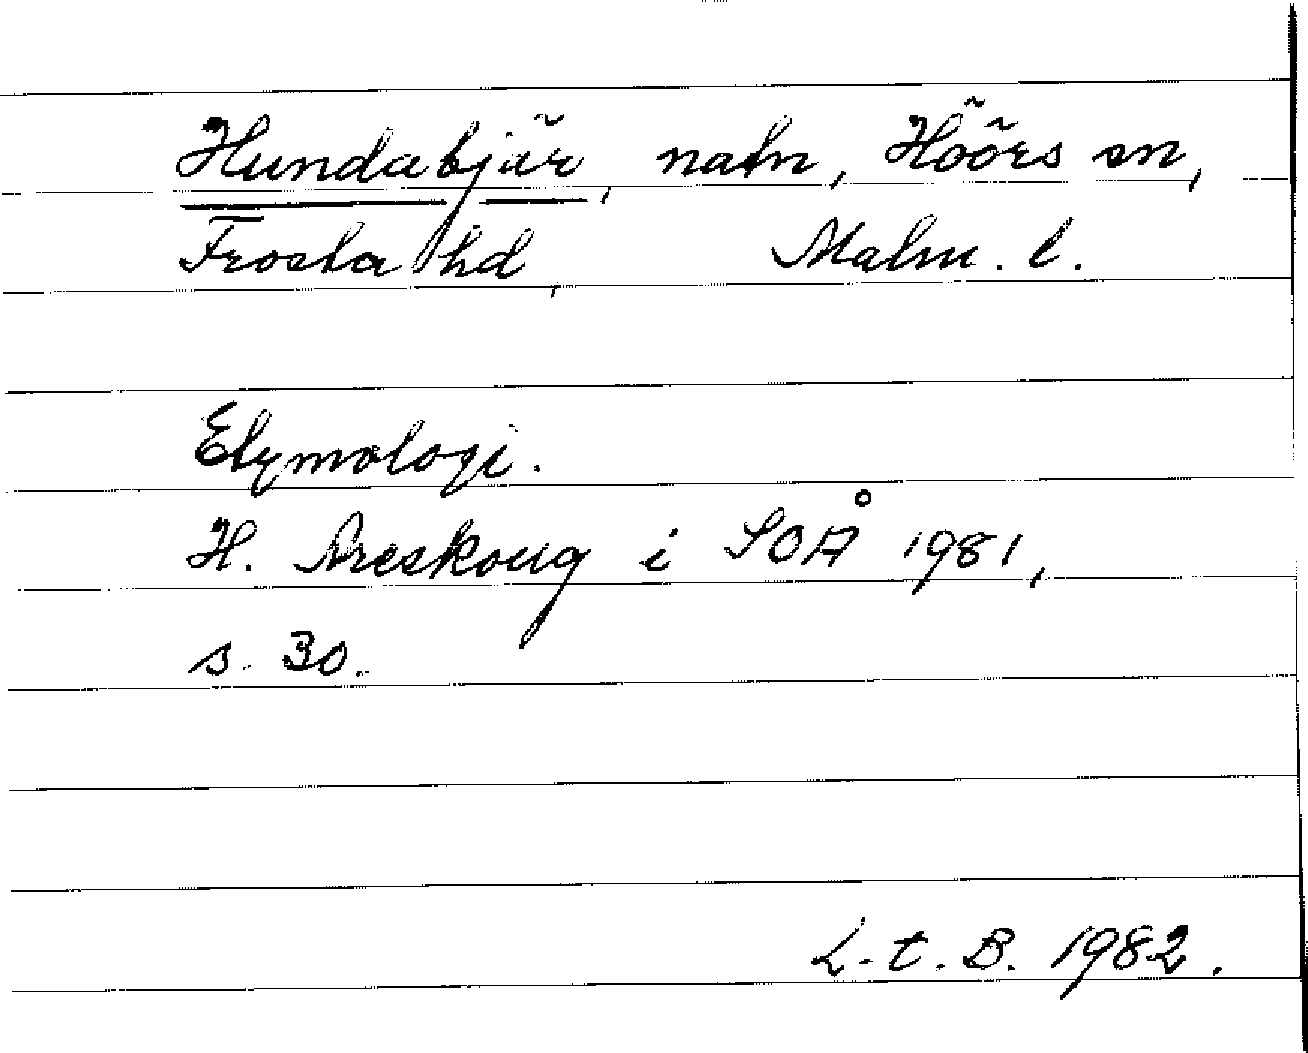 Hundabjär, natn, Höörs sn,
Frosta hd, Malm. l.
Etymologi.
H. Areskoug i SOÅ 1981,
s. 30.
L. t. B. 1982.